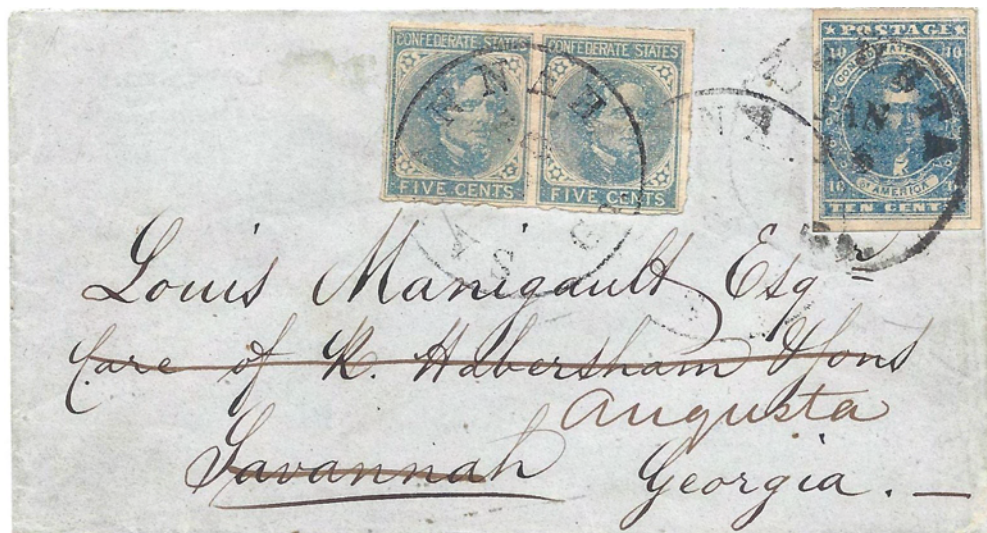 CONFEDERATE STATES
FIVE CENTS
CONFEDERATE STATES
FIVE CENTS
POSTAGE
10 10
OF AMERICA
10 10
TEN CENTS
Louis Manigault Esqr
Care of R. Habersham & Sons
Augusta
Savannah
Georgia.